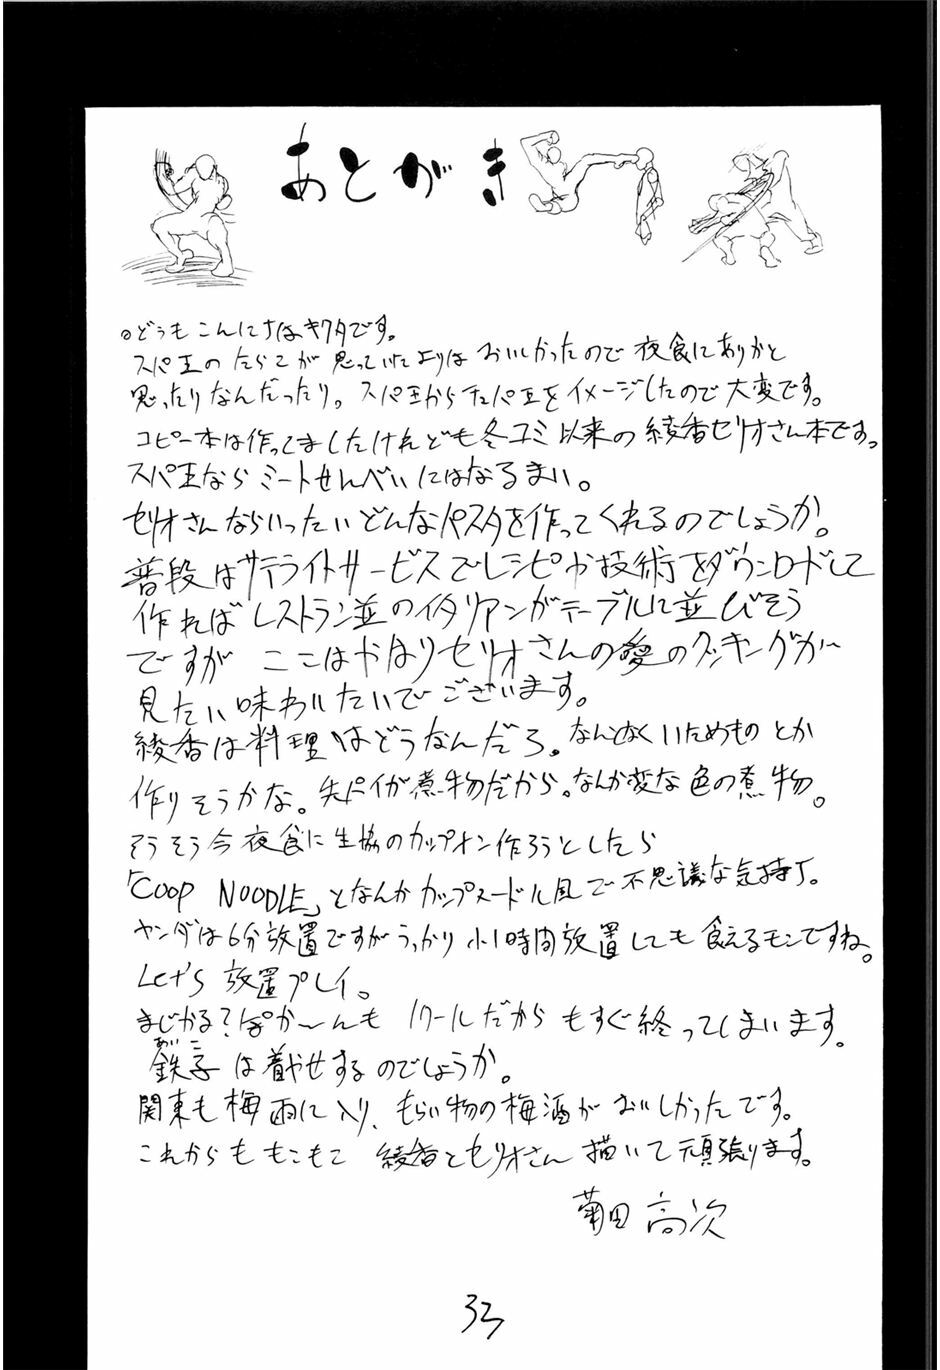 あとがき
○どうもこんにちはキクタです。
スパ王のたらこが思っていたよりはおいしかったので夜食にありかと
思ったりなんだったり。スパ王からをイメージしたので大変です。
コピー本は作ってましたけれども冬コミ以来の綾香セリオさん本です。
スパ王ならミートせんべいにはなるまい。
セリオさんならいったいどんなパスタを作ってくれるのでしょうか。
普段はサテライトサービスでレシピや技術をダウンロードして
作ればレストラン並のイタリアンがテーブルに並びそう
ですが ここはやはりセリオさんの愛のクッキングが
見たい味わいたいでございます。
綾香は料理はどうなんだろ。なんとなくいためものとか
作りそうかな。先パイが煮物だから。なんか変な色の煮物。
そうそう今夜食に生協のカップメン作ろうとしたら
「COOP NOODLE」となんかカップヌードル風で不思議な気持ち。
は6分放置ですがうっかり小1時間放置しても食えるモンですね。
Let's 放置プレイ。
まじかる?ぽか〜んも 1クールだからもすぐ終ってしまいます。
あいこ
鉄子は着やせするのでしょうか。
関東も梅雨に入り、もらい物の梅酒がおいしかったです。
これからももこもこ 綾香とセリオさん描いて頑張ります。
菊田 高次
33